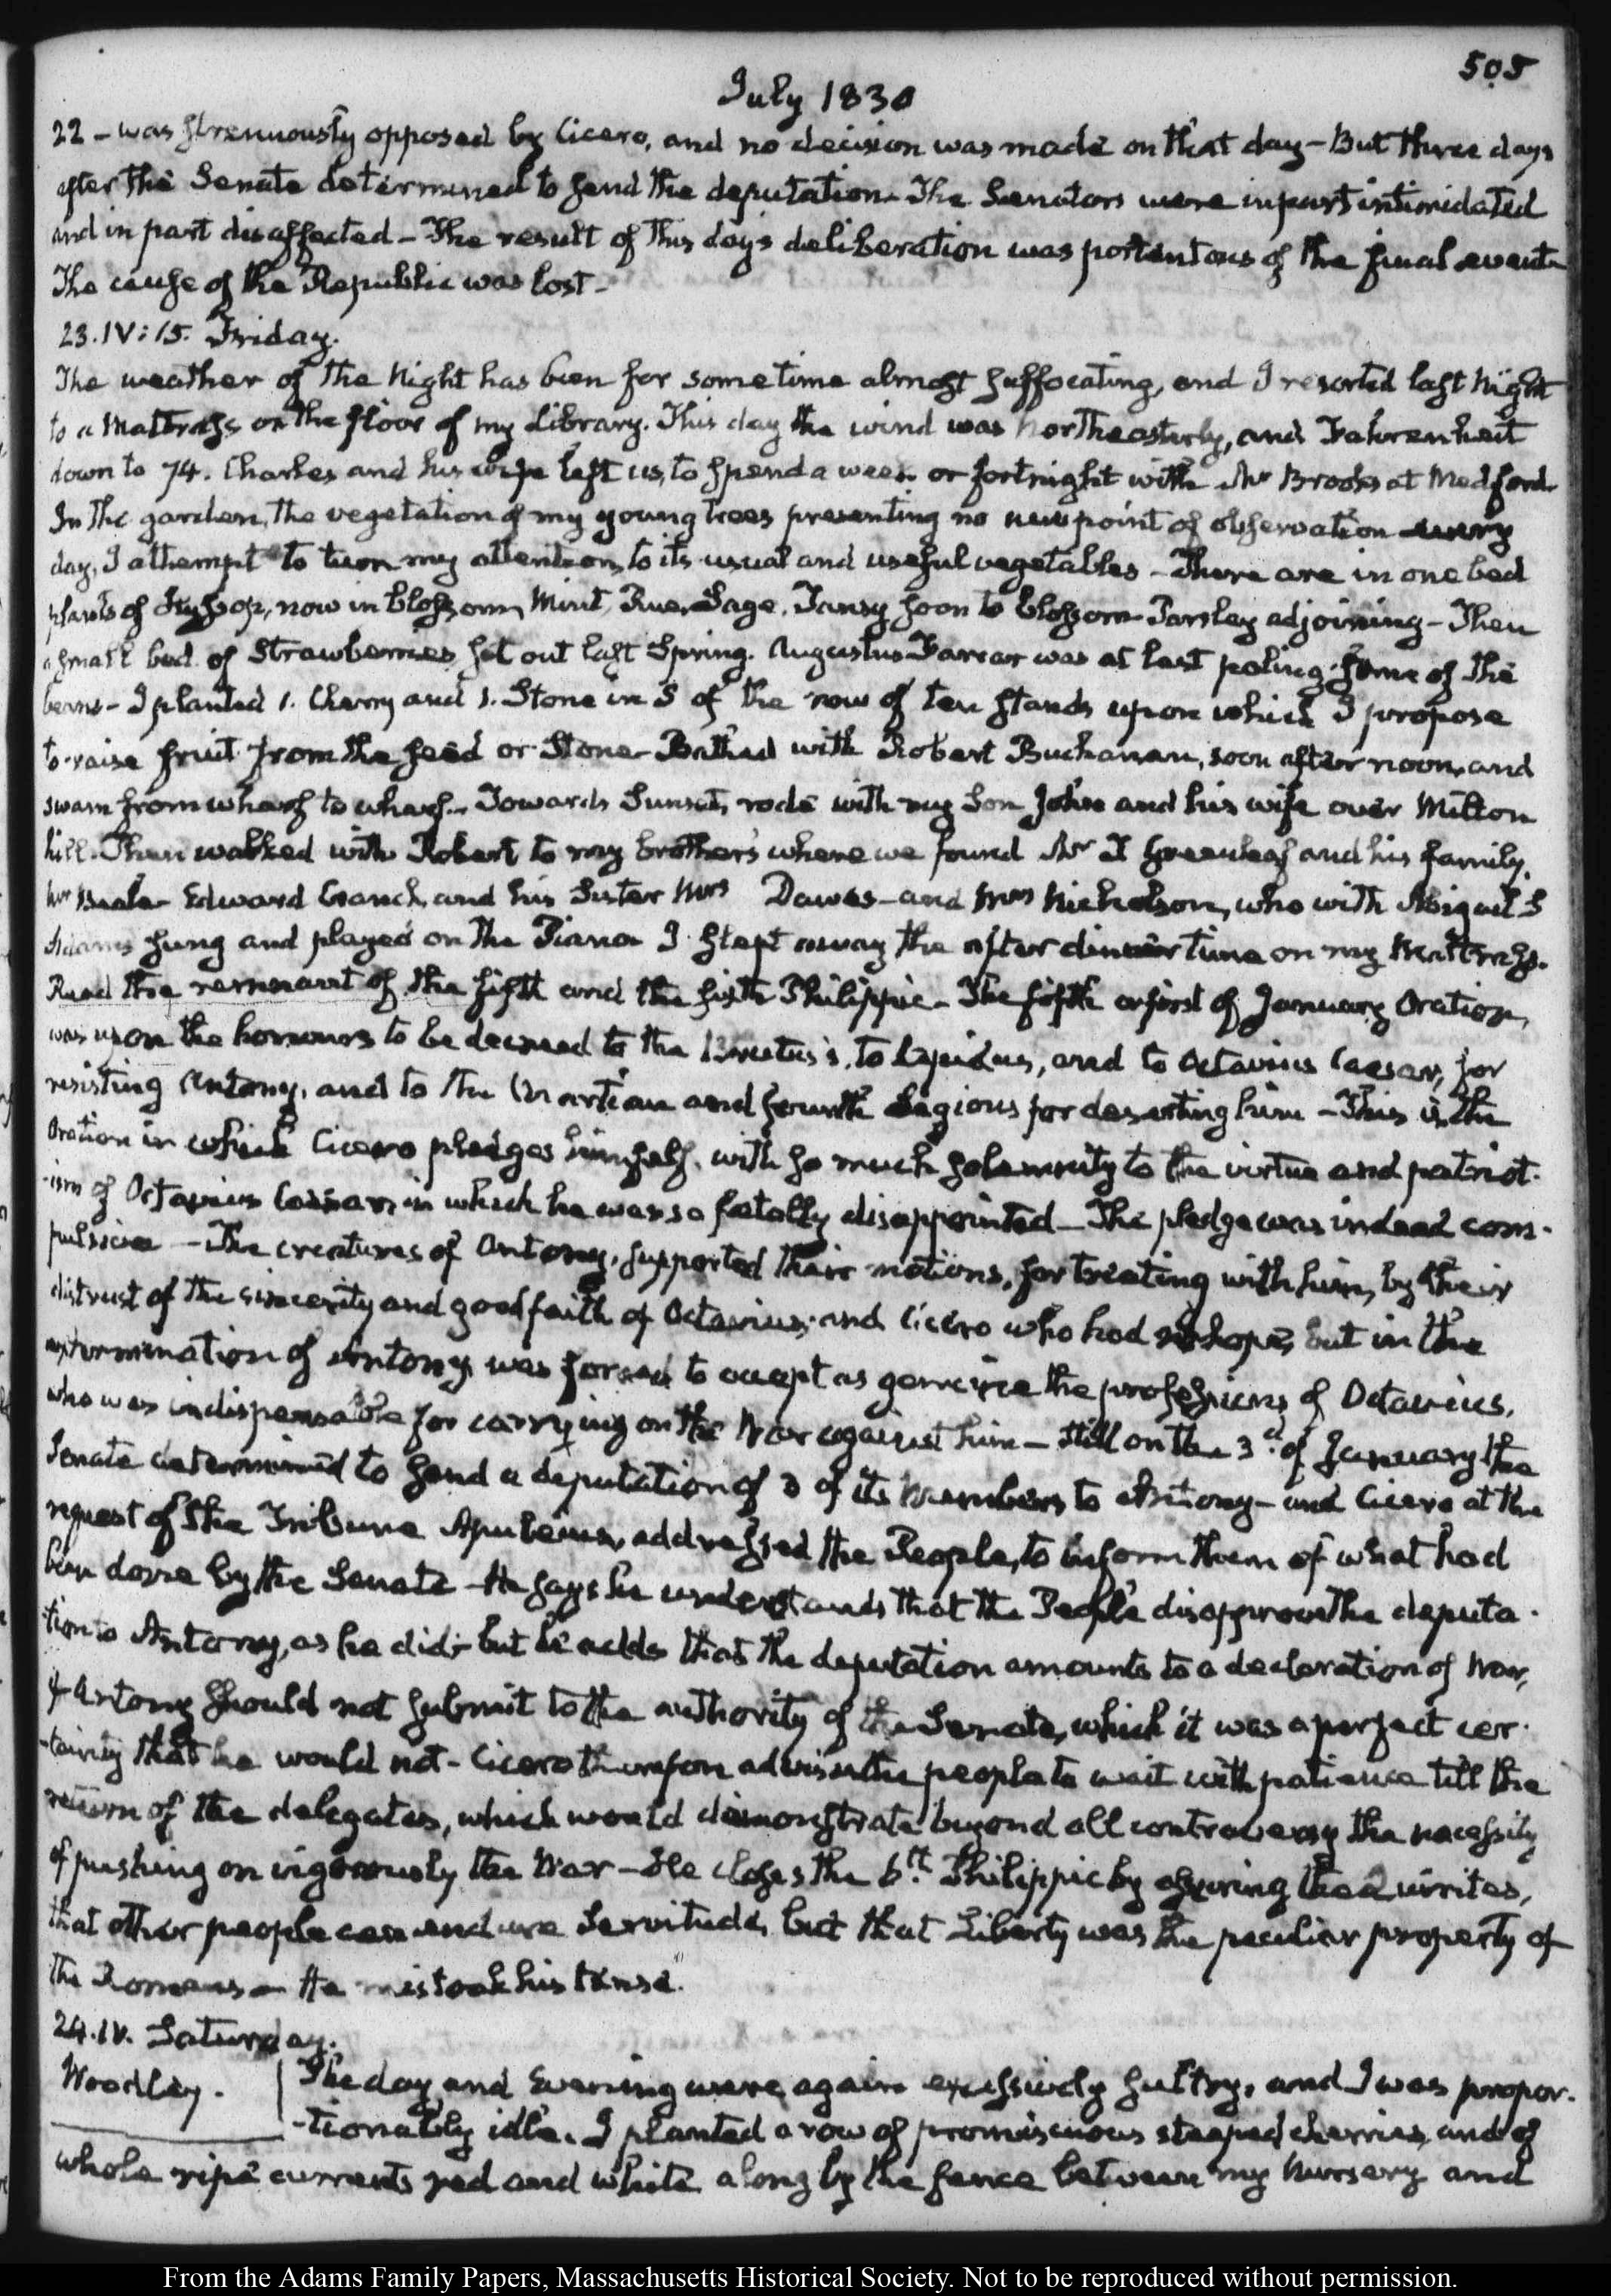 505
July 1830
22 - was strenuously opposed by Cicero, and no decision was made on that day - But three days
after the Senate determined to send the deputation - The Senators were in part intimidated
and in part disaffected - The result of this day's deliberation was portentous of the final event -
The cause of the Republic was lost -
23. IV: 15. Friday.
The weather of the Night has been for some time almost suffocating, and I resorted last Night
to a Mattrass on the floor of my Library. This day the wind was Northeasterly, and Fahrenheit
down to 74. Charles and his wife left us, to spend a week or fortnight with Mr Brooks at Medford.
In the garden, the vegetation of my young trees presenting no new point of observation every
day, I attempt to turn my attention to its usual and useful vegetables - There are in one bed
plants of Hyssop, now in blossom, Mint, Rue, Sage, Tansy soon to blossom Parsley adjoining - Then
a small bed of Strawberries set out last Spring. Augustus Farrar was at last poling some of the
beans - I planted 1. Cherry and 1. Stone in 5 of the row of ten stands upon which I propose
to raise fruit from the seed or Stone - Bathed with Robert Buchanan, soon after noon, and
swam from wharf to wharf - Towards Sunset, rode with my Son John and his wife over Milton
hill. Then walked with Robert to my brother's where we found Mr T Greenleaf and his family.
Mr Beale - Edward Cranch, and his Sister Mrs Dawes - and Mrs Nicholson, who with Abigail S
Adams sung and played on the Piano - I slept away the after dinner time on my Mattrass.
Read the remnant of the fifth and the sixth Philippic - The fifth or first of January Oration,
was upon the honours to be decreed to the Brutus's, to Lepidus, and to Octavius Caesar, for
resisting Antony, and to the Martian and fourth Legions for deserting him - This is the
Oration in which Cicero pledges himself, with so much solemnity to the virtue and patriot-
-ism of Octavius Caesar, in which he was so fatally disappointed - The pledge was indeed com-
pulsive - The creatures of Antony, supported their motions, for treating with him, by their
distrust of the sincerity and good faith of Octavius; and Cicero who had no hope, but in the
extermination of Antony, was forced to accept as genuine the professions of Octavius,
who was indispensable for carrying on the War against him - Still on the 3d. of January the
Senate determined to send a deputation of 3 of its Members to Antony - and Cicero at the
request of the Tribune Apuleius, addressed the People, to inform them of what had
been done by the Senate - He says he understands that the People disapprove the deputa-
tion to Antony, as he did; but he adds that the deputation amounts to a declaration of War,
if Antony should not submit to the authority of the Senate, which it was a perfect cer-
-tainty that he would not - Cicero therefore advises the people to wait with patience till the
return of the delegates, which would demonstrate beyond all controversy the necessity
of pushing on vigorously the War - He closes the 6th. Philippic by assuring the Quirites,
that other people can endure Servitude, but that Liberty was the peculiar property of
the Romans - He mistook his tense.
24. IV. Saturday.
Woodley. The day and Evening were again excessively sultry, and I was propor-
-tionately idle. I planted a row of promiscuous steaped cherries, and of
whole ripe currants red and white along by the fence between my Nursery and
From the Adams Family Papers, Massachusetts Historical Society. Not to be reproduced without permission.